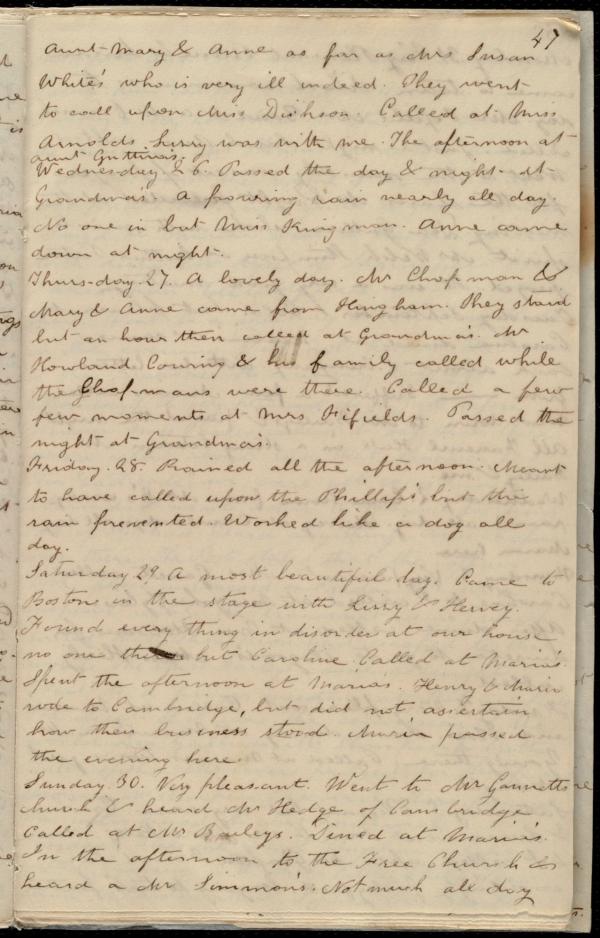 47
Aunt Mary & Anne as far as Mrs Susan
White's who is very ill indeed. They went
to call upon Miss Dickson. Called at Miss
Arnolds. Lizzy was with me. The afternoon at
aunt Guttina's.
Wednesday 26. Passed the day & night at
Grandma's. A pouring rain nearly all day.
No one in but Miss Kingman. Anne came
down at night.
Thursday 27. A lovely day. Mr Chapman &
Mary & Anne came from Hingham. They staid
but an hour then called at Grandma's. Mr
Howland Cowing & his family called while
the Chapmans were there. Called a few
few moments at Mrs Fifields. Passed the
night at Grandma's.
Friday. 28. Rained all the afternoon. Meant
to have called upon the Phillips, but the
rain prevented. Worked like a dog all
day.
Saturday 29 A most beautiful day. Came to
Boston in the stage with Lizzy & Hervey.
Found every thing in disorder at our house
no one there but Caroline. Called at Maria's.
Spent the afternoon at Maria's. Henry & Maria
rode to Cambridge, but did not assertain
how their business stood. Maria passed
the evening here.
Sunday. 30. Very pleasant. Went to Mr Gannetts
church & heard Mr Hedge of Cambridge
Called at Mr Baileys. Dined at Maria's.
In the afternoon to the Free Church &
heard a Mr Simmons. Not much all day